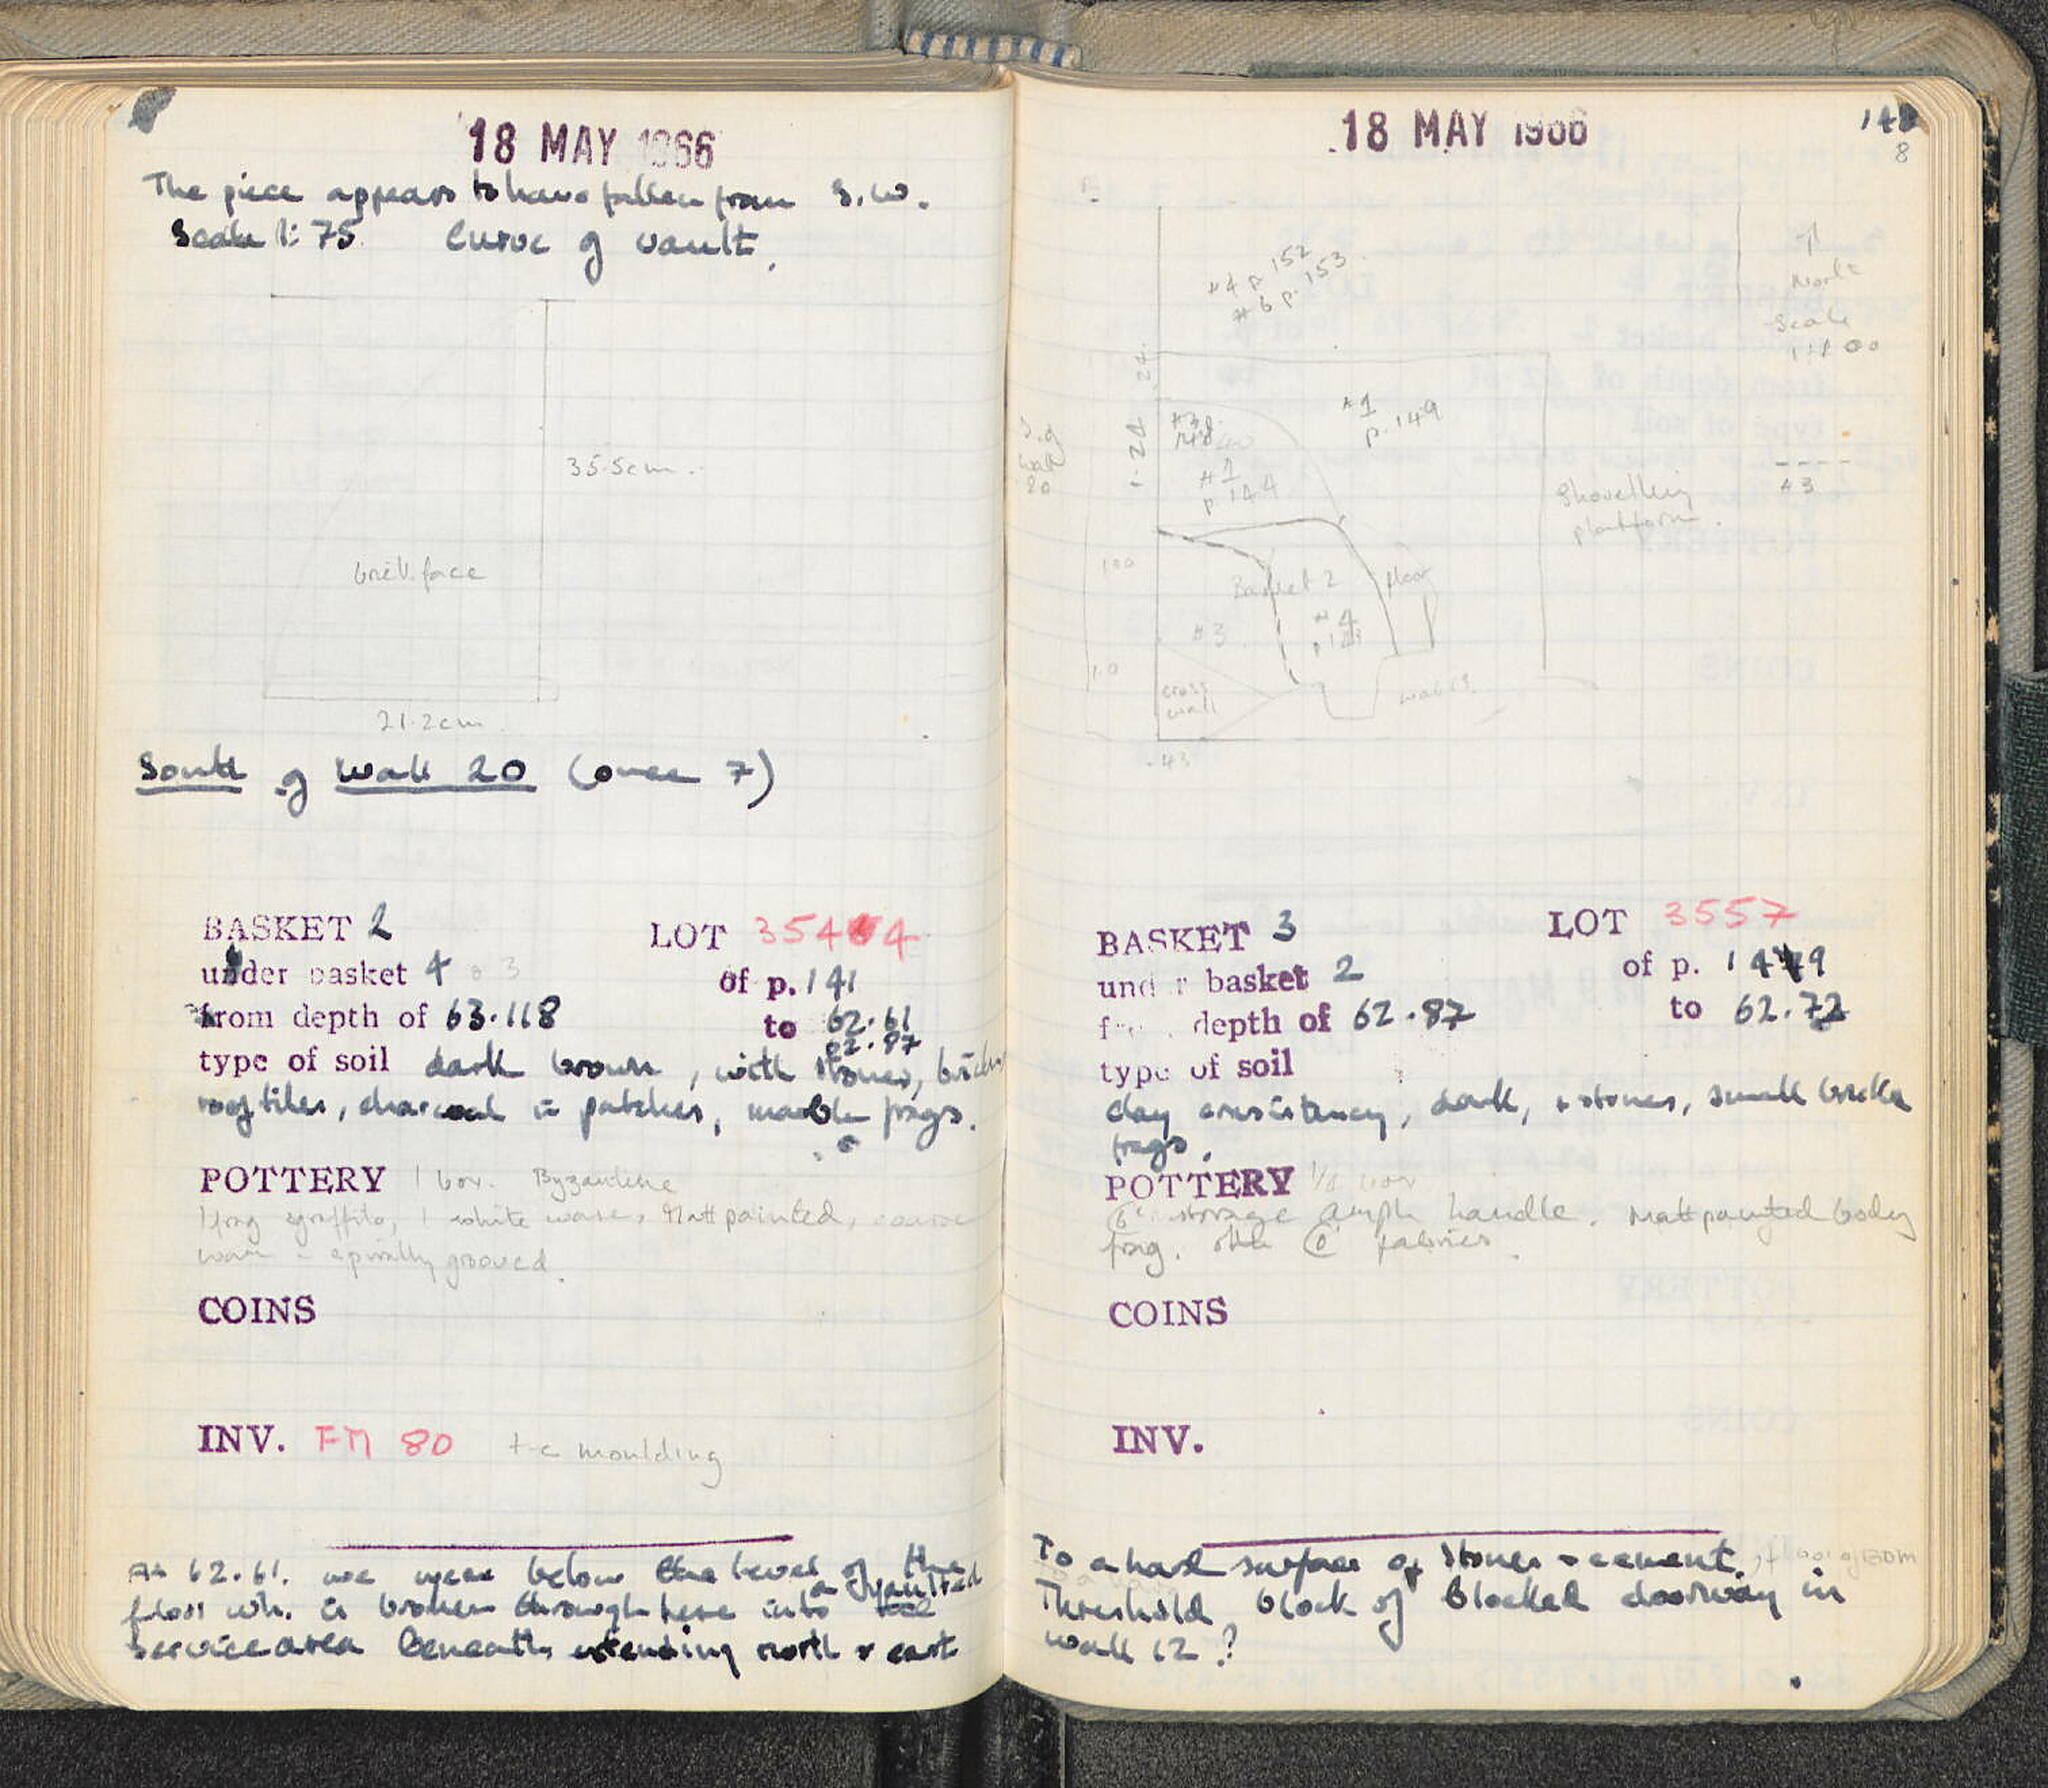 18 MAY 1966
The piece appears to have fallen from S.W.
Scale 1:75 Curve of vault.
35.5cm.
brick face
21.2cm.
South of Wall 20 (over 7)
BASKET 2 LOT 3544
under basket 4 of p. 141
from depth of 63.118 to 62.61
62.87
type of soil dark brown, with stones, bricks
rooftiles, charcoal in patches, marble frags.
POTTERY 1 box. Byzantine
1 frag sgraffito, 1 white ware, Matt painted, coarse
ware - spirally grooved.
COINS
INV. FM 80 t-c moulding
At 62.61. we were below the level of the
floor wh. is broken through here into a vaulted
service area beneath, extending north & east
18 MAY 1966
148
8
#4 p. 152
#6 p. 153
North
Scale
1:100
#1
p. 149
S. of
Wall
20
1.24
#1
p. 144
#3
Shovelling
platform.
100
Basket 2 floor
#4
#3
cross
wall
.43
BASKET 3 LOT 3557
under basket 2 of p. 149
depth of 62.87 to 62.72
type of soil
clay consistency, dark, + stones, small bricks
frags.
POTTERY
storage amph handle. Matt painted body
frag. fabrics.
COINS
INV.
To a hard surface of stones & cement
Threshold block of blocked doorway in
wall 12?